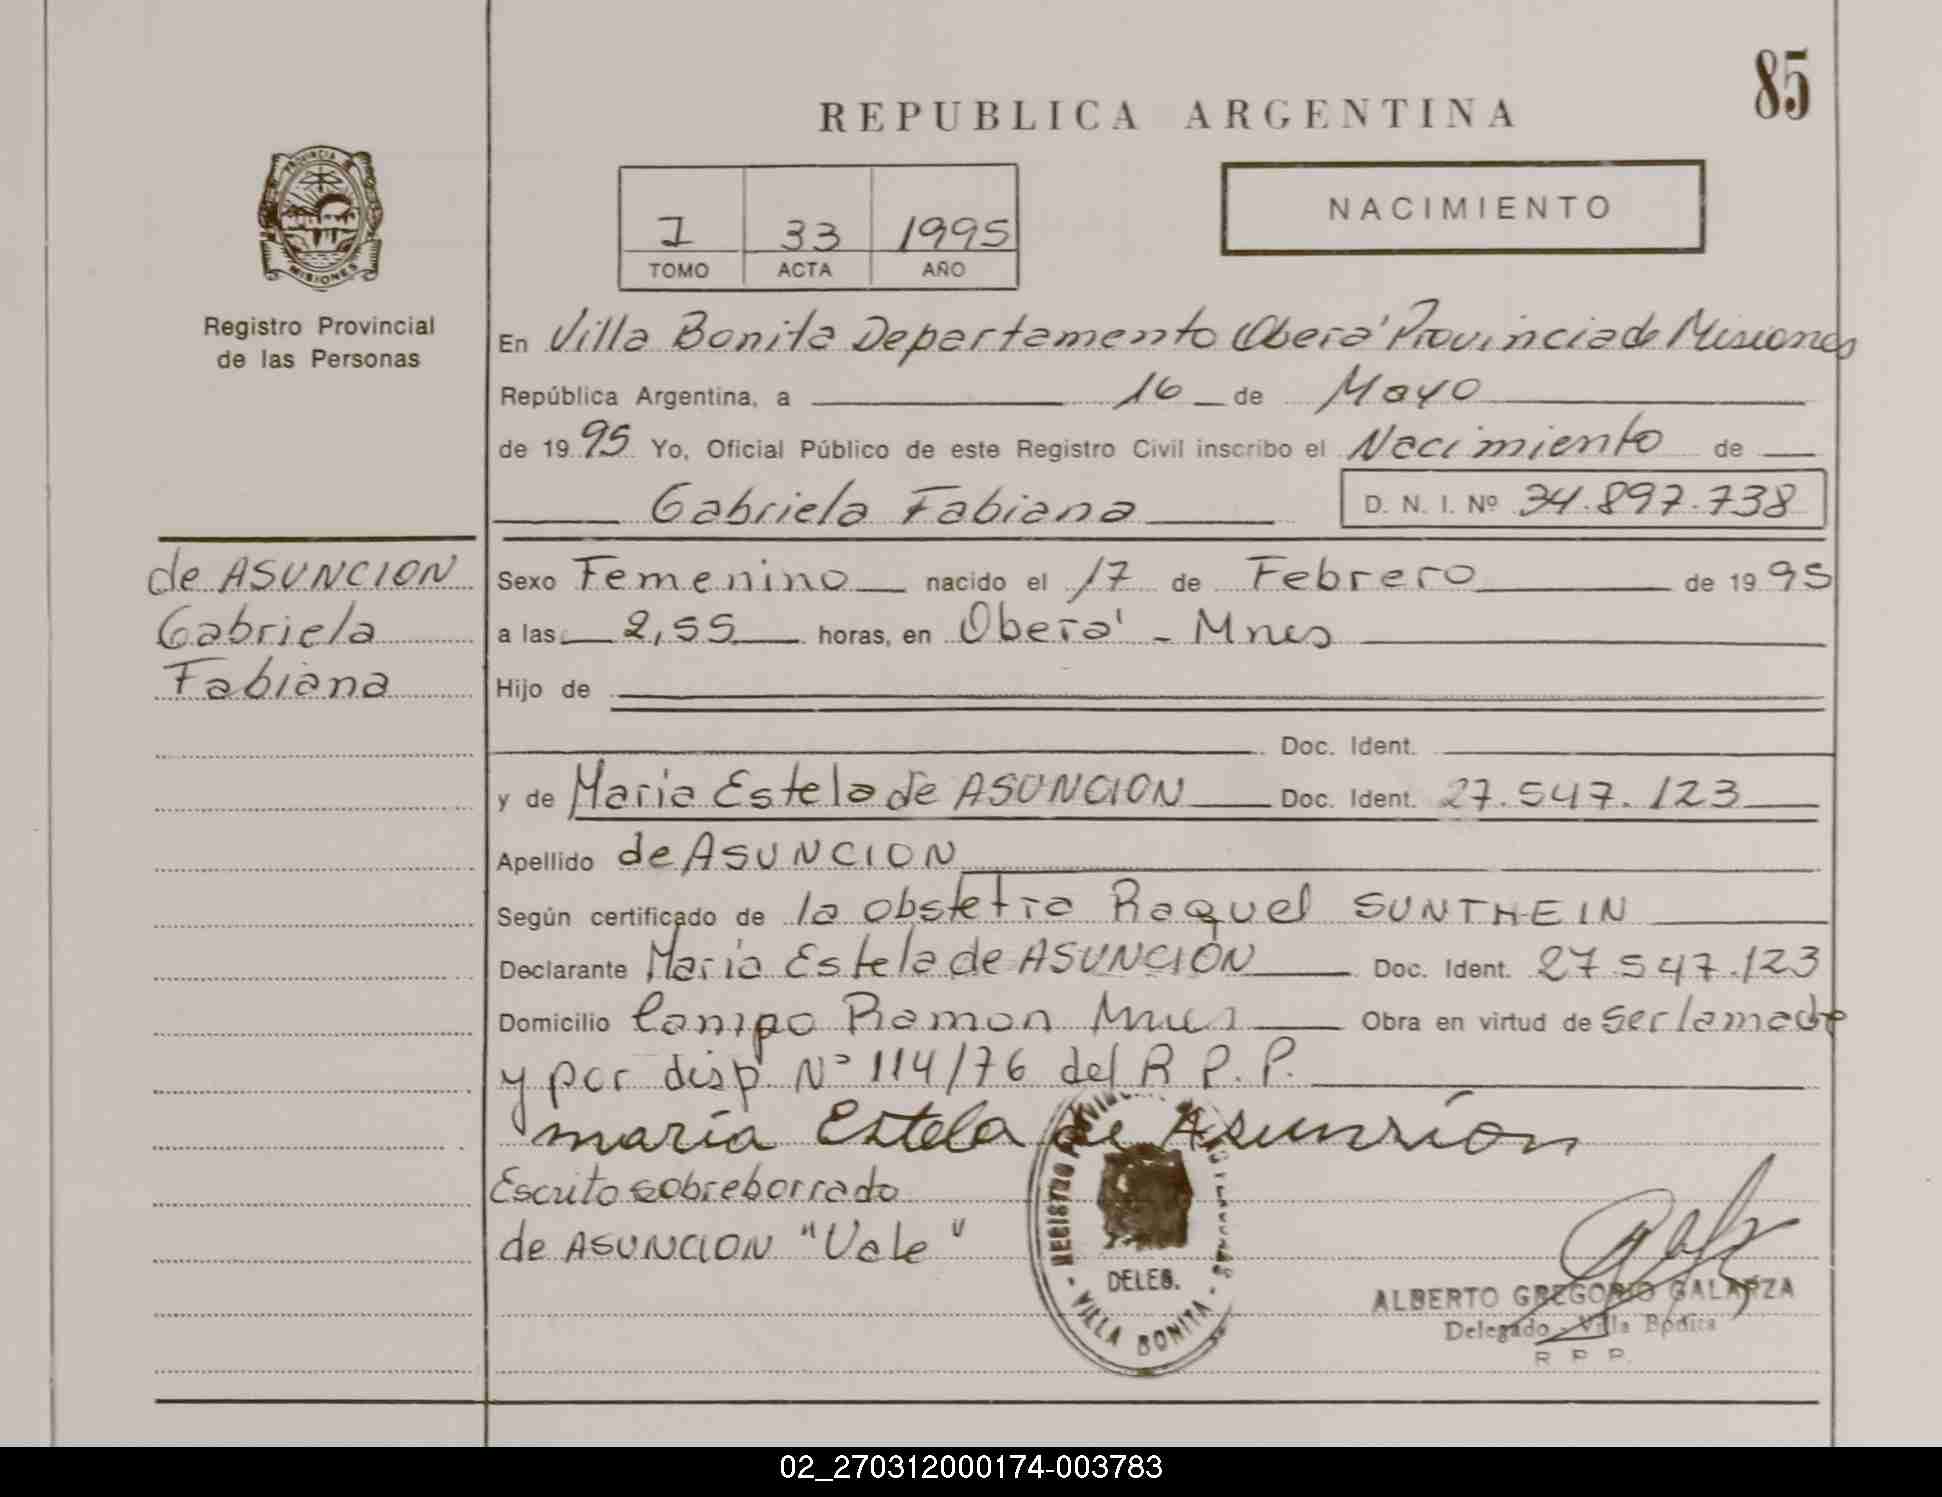 85
REPUBLICA ARGENTINA
PROVINCIA
MISIONES
Registro Provincial
de las Personas
I 33 1995
TOMO ACTA AÑO
NACIMIENTO
En Villa Bonita Departamento Oberá Provincia de Misiones
República Argentina, a 16 de Mayo
de 1995 Yo, Oficial Público de este Registro Civil inscribo el Nacimiento de
Gabriela Fabiana D. N. I. Nº 34.897.738
de ASUNCION
Gabriela
Fabiana
Sexo Femenino nacido el 17 de Febrero de 1995
a las 2,55 horas, en Oberá - Mnes
Hijo de
Doc. Ident.
y de Maria Estela de ASUNCION Doc. Ident. 27.547.123
Apellido de ASUNCION
Según certificado de la obstetra Raquel SUNTHEIN
Declarante Maria Estela de ASUNCIÓN Doc. Ident. 27.547.123
Domicilio Campo Ramon Mnes Obra en virtud de ser la madre
y por disp. Nº 114/76 del R. P. P.
maría Estela de Asunsión
Escrito sobreborrado
de ASUNCION "Vale"
REGISTRO
DELEG.
- VILLA BONITA -
ALBERTO GREGORIO GALARZA
Delegado - Villa Bonita
R P P.
02_270312000174-003783